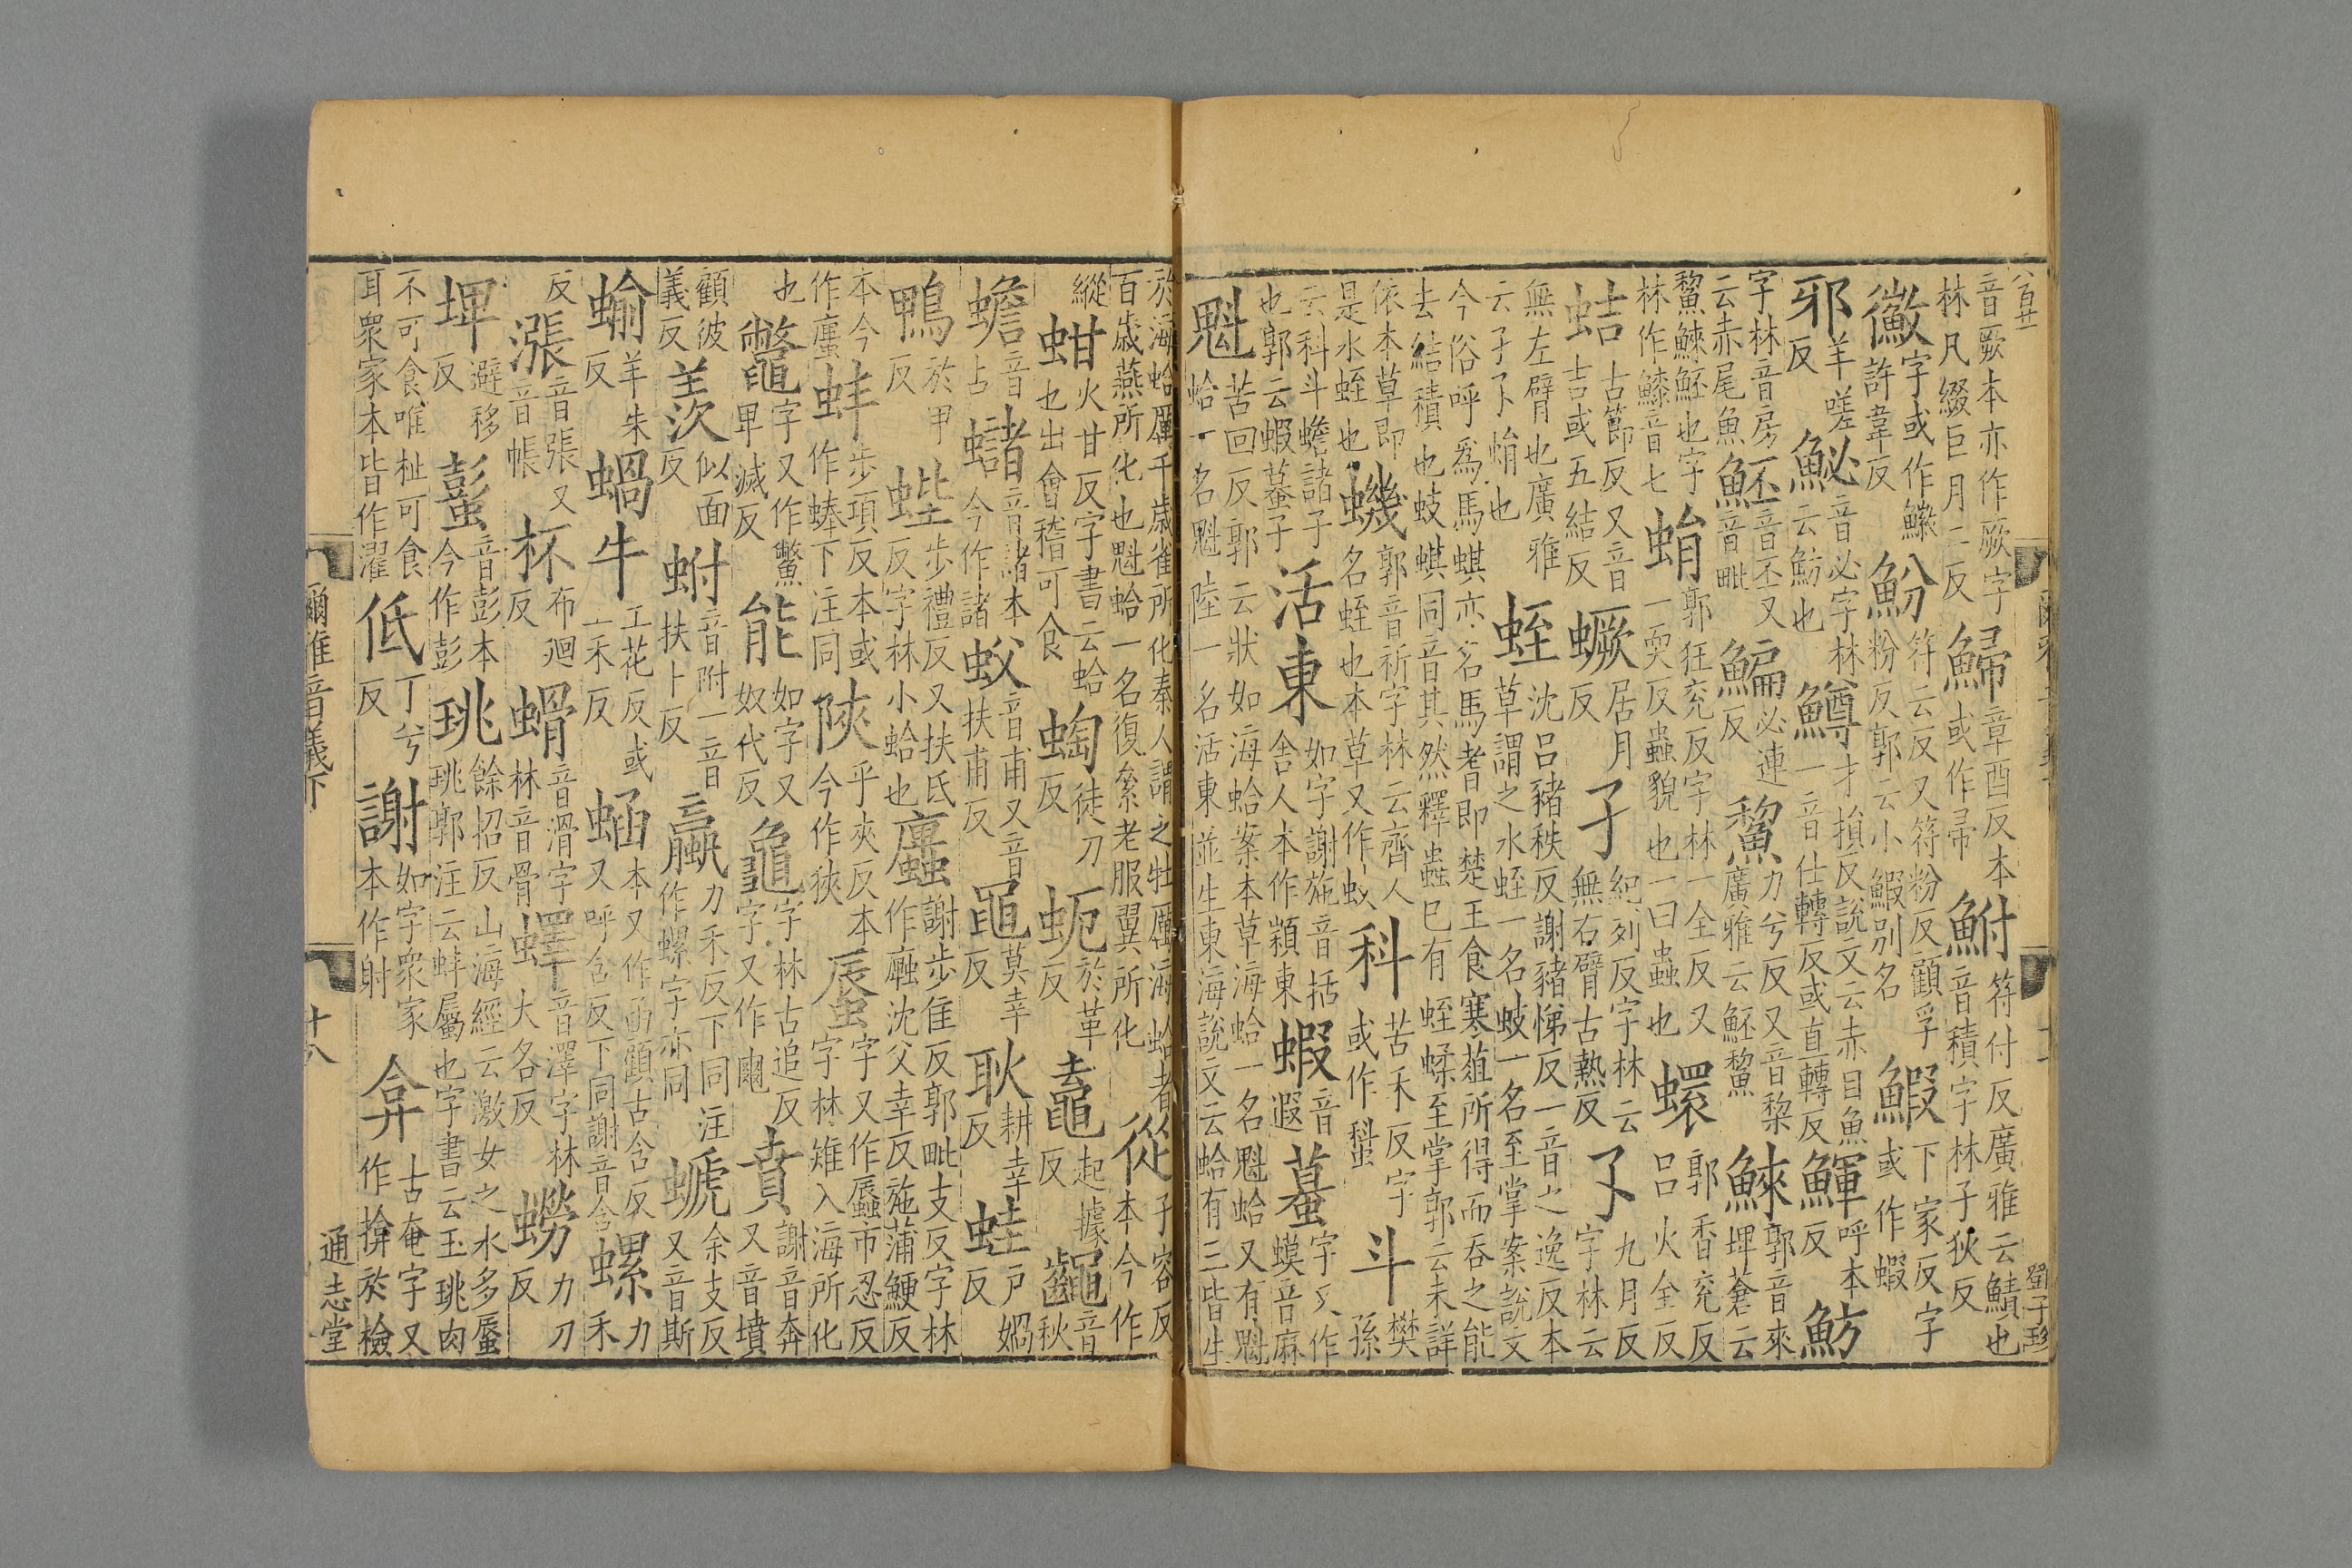 八百廿
音厥本亦作厥字林凡綴巨月二反鯞章酉反本或作帚鮒符付反廣雅云鯖也音積字林子狄反
鰴字或作鱶許韋反魵符云反又符粉反顧孚粉反郭云小鰕別名鰕下家反字或作蝦
邪羊嗟反鮅音必字林云魴也鱒才損反說文云赤目魚一音仕轉反或直轉反鯶呼本反魴
字林音房云赤尾魚魾音丕又音毗鯿必連反鯬力兮反又音棃廣雅云魾鯬鯠郭音來埤蒼云
鯬鯠魾也字林作鰊音七蜎郭狂兖反字林一全反又一耎反蟲貌也一曰蟲也蠉郭香兖反呂火全反
蛣古節反又音吉或五結反蟩居月反孑紀列反字林云無右臂古熱反孓九月反字林云
無左臂也廣雅云孑孓蜎也蛭沈呂豬秩反謝豬悌反一音之逸反本草謂之水蛭一名蚑一名至掌案說文
今俗呼爲馬蜞亦名馬耆即楚王食寒葅所得而吞之能去結積也蚑蜞同音其然釋蟲巳有蛭蝚至掌郭云未詳
依本草即是水蛭也蟣郭音祈字林云齊人名蛭也本草又作蚑科苦禾反字或作蝌斗樊孫
云科斗蟾諸子也郭云蝦蟇子活東如字謝施音括舍人本作潁東蝦音遐蟇字又作蟆音麻
魁苦回反郭云狀如海蛤案本草海蛤一名魁蛤又有魁蛤一名魁陸一名活東並生東海說文云蛤有三皆生
鄧子珍
於海蛤厲千歲雀所化秦人謂之牡厲海蛤者百歲燕所化也魁蛤一名復絫老服翼所化從子容反本今作
縱蚶火甘反字書云蛤也出會稽可食蜪徒刀反蚅於革反鼁起據反鼀音秋
蟾音占蠩音諸本今作諸蚥音甫又音扶甫反黽莫幸反耿耕幸反蛙戶媧反
鴨於甲反蜌步禮反又扶氐反字林小蛤也蠯謝步隹反郭毗支反字林作廘沈父幸反施蒲鯁反
本今作蠯蚌步項反本或作蜯下注同陜乎夾反本今作狹蜃字又作蜄市忍反字林雉入海所化
也鼈字又作鱉甲滅反能如字又奴代反龜字林古追反字又作𪚦賁謝音奔又音墳
顧彼義反羨似面反蚹音附一音扶卜反蠃力禾反下同注作螺字亦同螔余支反又音斯
蝓羊朱反蝸牛工花反或工禾反蜬本又作函顧古含反又呼含反下同謝音含螺力禾
反漲音張又音帳柸布廻反蝟音滑字林音骨蠌音澤字林大各反蟧力刀反
埤避移反蟚音彭本今作彭珧餘招反山海經云激女之水多蜃珧郭注云蚌屬也字書云玉珧肉
不可食唯杫可食耳衆家本皆作濯低丁兮反謝如字衆家本作射弇古奄字又作揜於檢
爾雅音義下
十八
通志堂